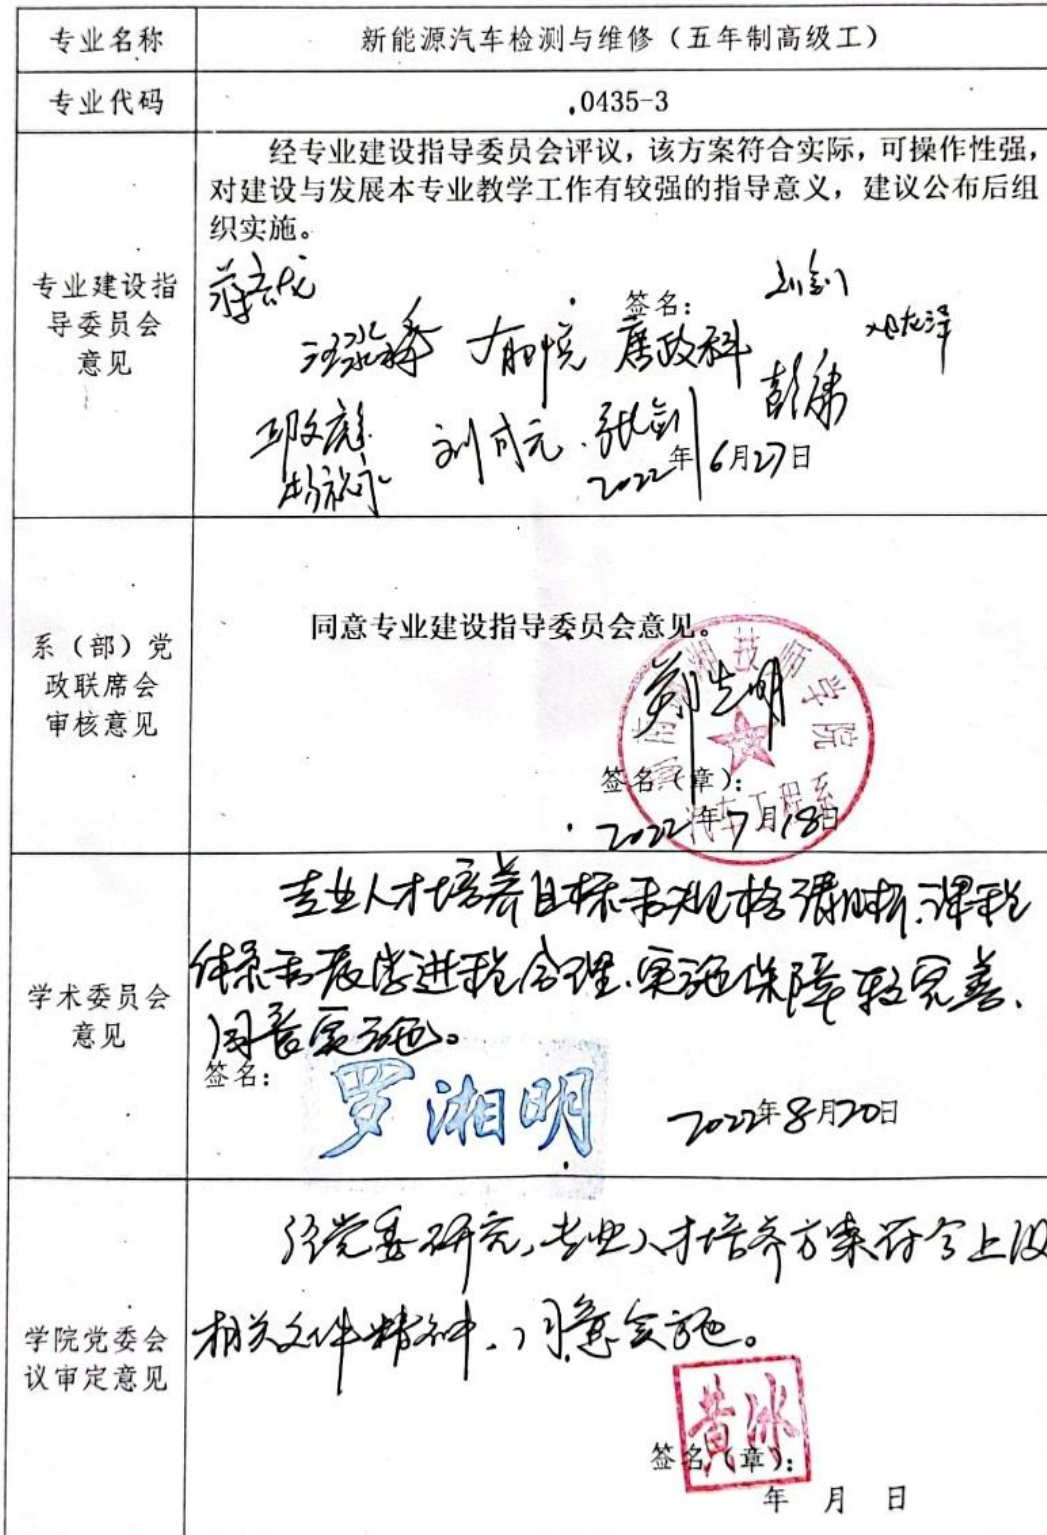 专业名称
新能源汽车检测与维修（五年制高级工）
专业代码
0435-3
专业建设指
导委员会
意见
经专业建设指导委员会评议，该方案符合实际，可操作性强，
对建设与发展本专业教学工作有较强的指导意义，建议公布后组
织实施。
签名：
唐政科
彭
邱文彪
刘成元
张剑
2022年6月27日
系（部）党
政联席会
审核意见
同意专业建设指导委员会意见。
技师学院
汽车工程系
签名（章）：
2022年7月18日
学术委员会
意见
专业人才培养目标和规格清晰、课程
体系和教学进程合理、实施保障较完善、
同意实施。
签名：
罗湘明
2022年8月20日
学院党委会
议审定意见
经党委研究，专业人才培养方案符合上级
相关文件精神、同意实施。
黄冰
签名（章）：
年 月 日